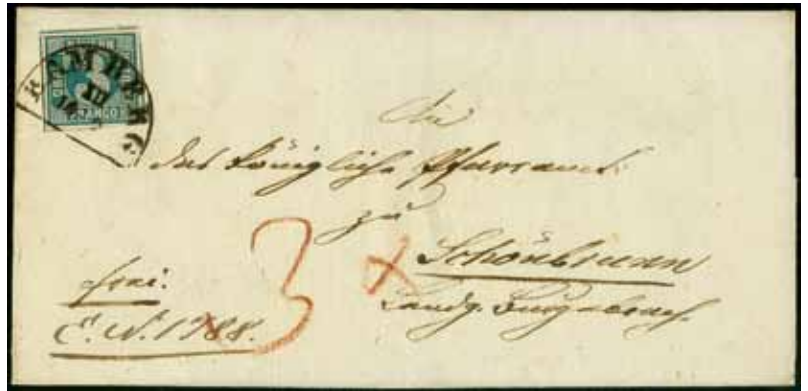 BAMBERG
XII
FRANCO
An
das königliche Pfarramt
zu
Schönbrunn
Landg. Burgebrach.
frei:
E. N. 1788.
3